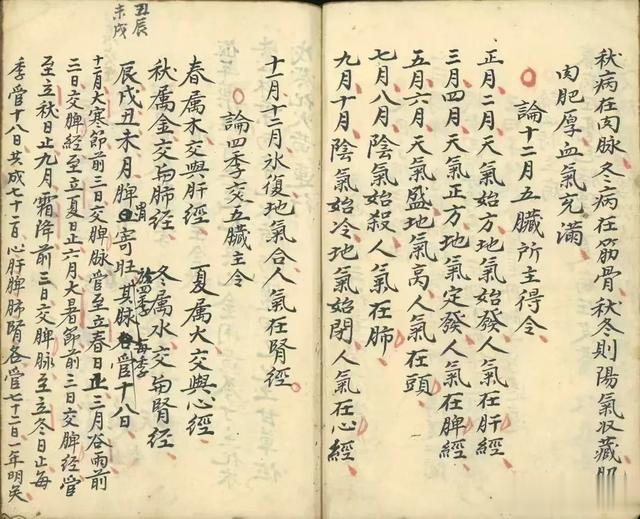 秋病在肉脉冬病在筋骨秋冬則陽氣収藏肌
肉肥厚血氣充滿
○論十二月五臟所主得令
正月二月天氣始方地氣始發人氣在肝經
三月四月天氣正方地氣定發人氣在脾經
五月六月天氣盛地氣高人氣在頭
七月八月陰氣始殺人氣在肺
九月十月陰氣始冷地氣始閉人氣在心經
十一月十二月氷復地氣合人氣在腎經
○論四季交五臟主令
春属木交與肝經 夏属火交與心經
秋属金交與肺經 冬属水交與腎經
辰戌丑未月脾胃寄旺於四季每季其脉管十八日
丑辰
未戌
十二月大寒節前三日交脾脉管至立春日止三月谷雨前
三日交脾經至立夏日止六月大暑節前三日交脾經管
至立秋日止九月霜降前三日交脾脉至立冬日止每
季管十八日共成七十二日心肝脾肺腎各管七十二日一年明矣